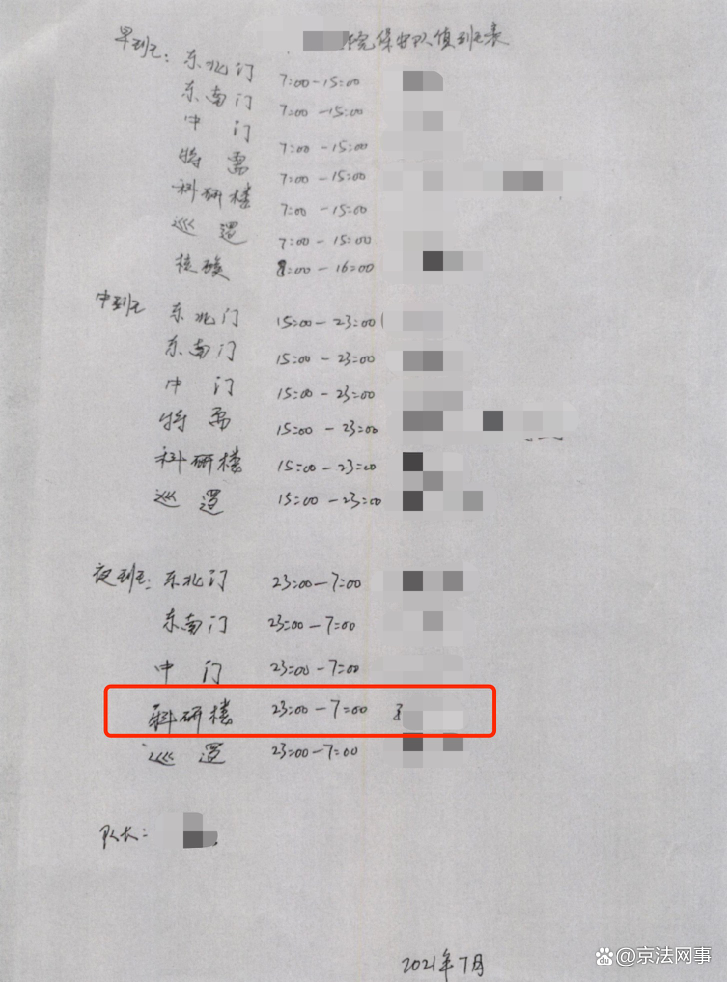 院保安队值班表
早班: 东北门 7:00-15:00
东南门 7:00-15:00
中门 7:00-15:00
特需 7:00-15:00
科研楼 7:00-15:00
巡逻 7:00-15:00
核酸 8:00-16:00
中班 东北门 15:00-23:00
东南门 15:00-23:00
中门 15:00-23:00
特需 15:00-23:00
科研楼 15:00-23:00
巡逻 15:00-23:00
夜班: 东北门 23:00-7:00
东南门 23:00-7:00
中门 23:00-7:00
科研楼 23:00-7:00
巡逻 23:00-7:00
队长:
2021年7月
@京法网事